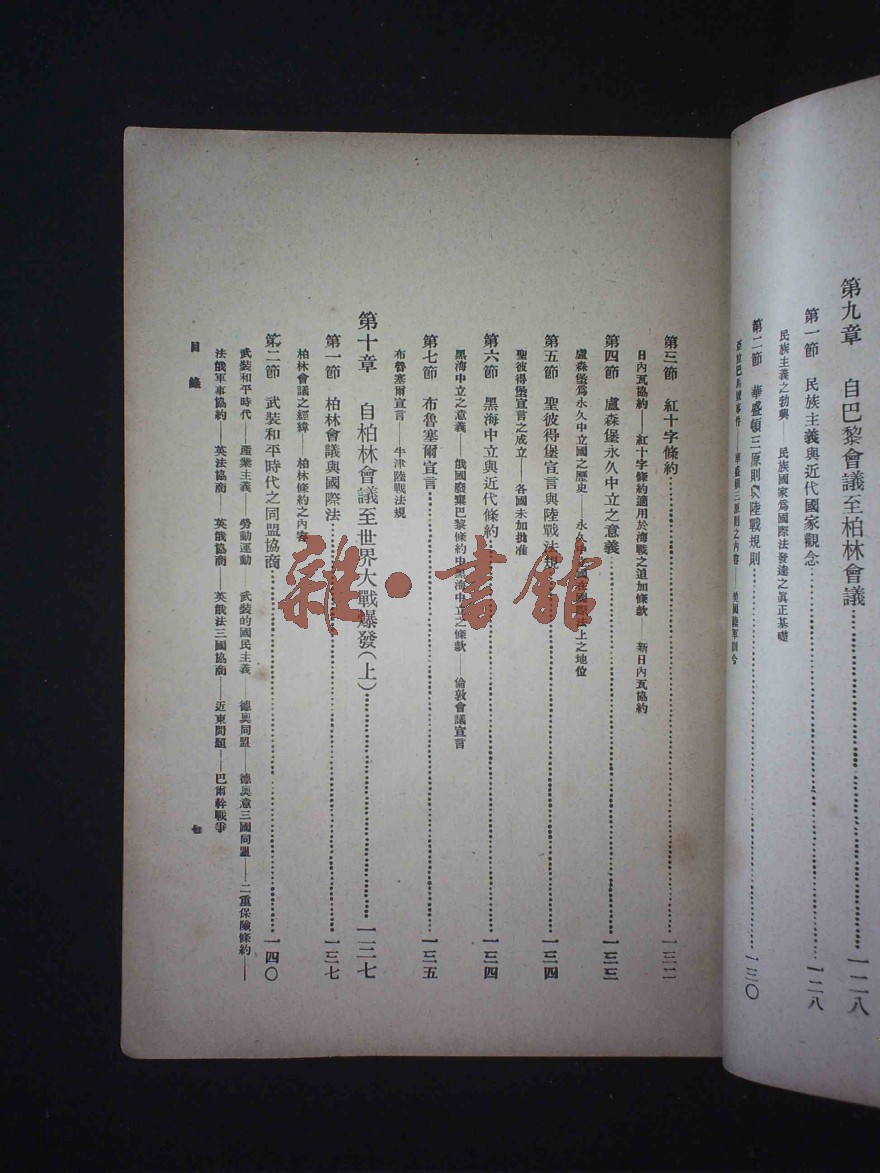 第九章　自巴黎會議至柏林會議……一二八
第一節　民族主義與近代國家觀念……一二八
民族主義之勃興——民族國家爲國際法發達之眞正基礎
第二節　華盛頓三原則及陸戰規則……一三〇
華盛頓三原則之內容
第三節　紅十字條約……一三二
日內瓦協約——紅十字條約適用於海戰之追加條款　新日內瓦協約
第四節　盧森堡永久中立之意義……一三三
盧森堡爲永久中立國之歷史——永久中立國在國際法上之地位
第五節　聖彼得堡宣言與陸戰法規……一三四
聖彼得堡宣言之成立——各國未加批准
第六節　黑海中立與近代條約……一三四
黑海中立之意義——俄國廢棄巴黎條約中黑海中立之條款——倫敦會議宣言
第七節　布魯塞爾宣言……一三五
布魯塞爾宣言——牛津陸戰法規
第十章　自柏林會議至世界大戰爆發（上）……一三七
第一節　柏林會議與國際法……一三七
柏林會議之經緯——柏林條約之內容
第二節　武裝和平時代之同盟協商……一四〇
武裝和平時代　產業主義——勞動運動　武裝的國民主義——德奧同盟——德奧意三國同盟——二重保險條約——
法俄軍事協約——英法協商——英俄協商——英俄法三國協商——近東問題——巴爾幹戰爭
目錄
七
雜·書館